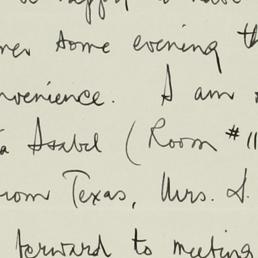 be happy to have
ner some evening th
nvenience. I am
ta Isabel (Room #11
rom Texas, Mrs. S.
forward to meeting